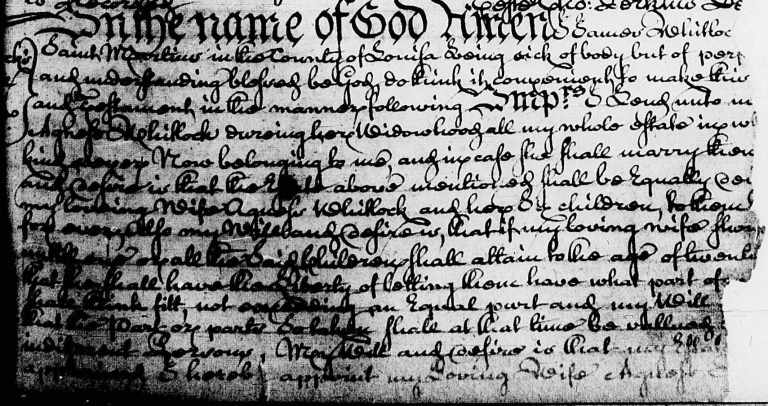 In the name of God Amen I James Whitloc
Saint Martins in the County of Louisa being sick of body but of perf
and understanding blessed be God do think it convenient to make this
and Testament in the manner following Imprs I Lend unto m
Agness Whitlock dureing her Widowhood all my whole Estate in w
kind soever Now belonging to me and in case she shall marry then
and desire is that the above mentioned shall be Equally de
my loving Wife Agness Whitlock and her children, to them
for ever, Also my Will and desire is, that if my loving wife
or all the said Children shall attain to the age of twent
that she shall have the Liberty of letting them have what part of
fitt, not Exceeding an Equal part and my Will
that the part or parts shall at that time be vallued
Persons, My Will and desire is that my
I hereby appoint my Loving Wife Agness